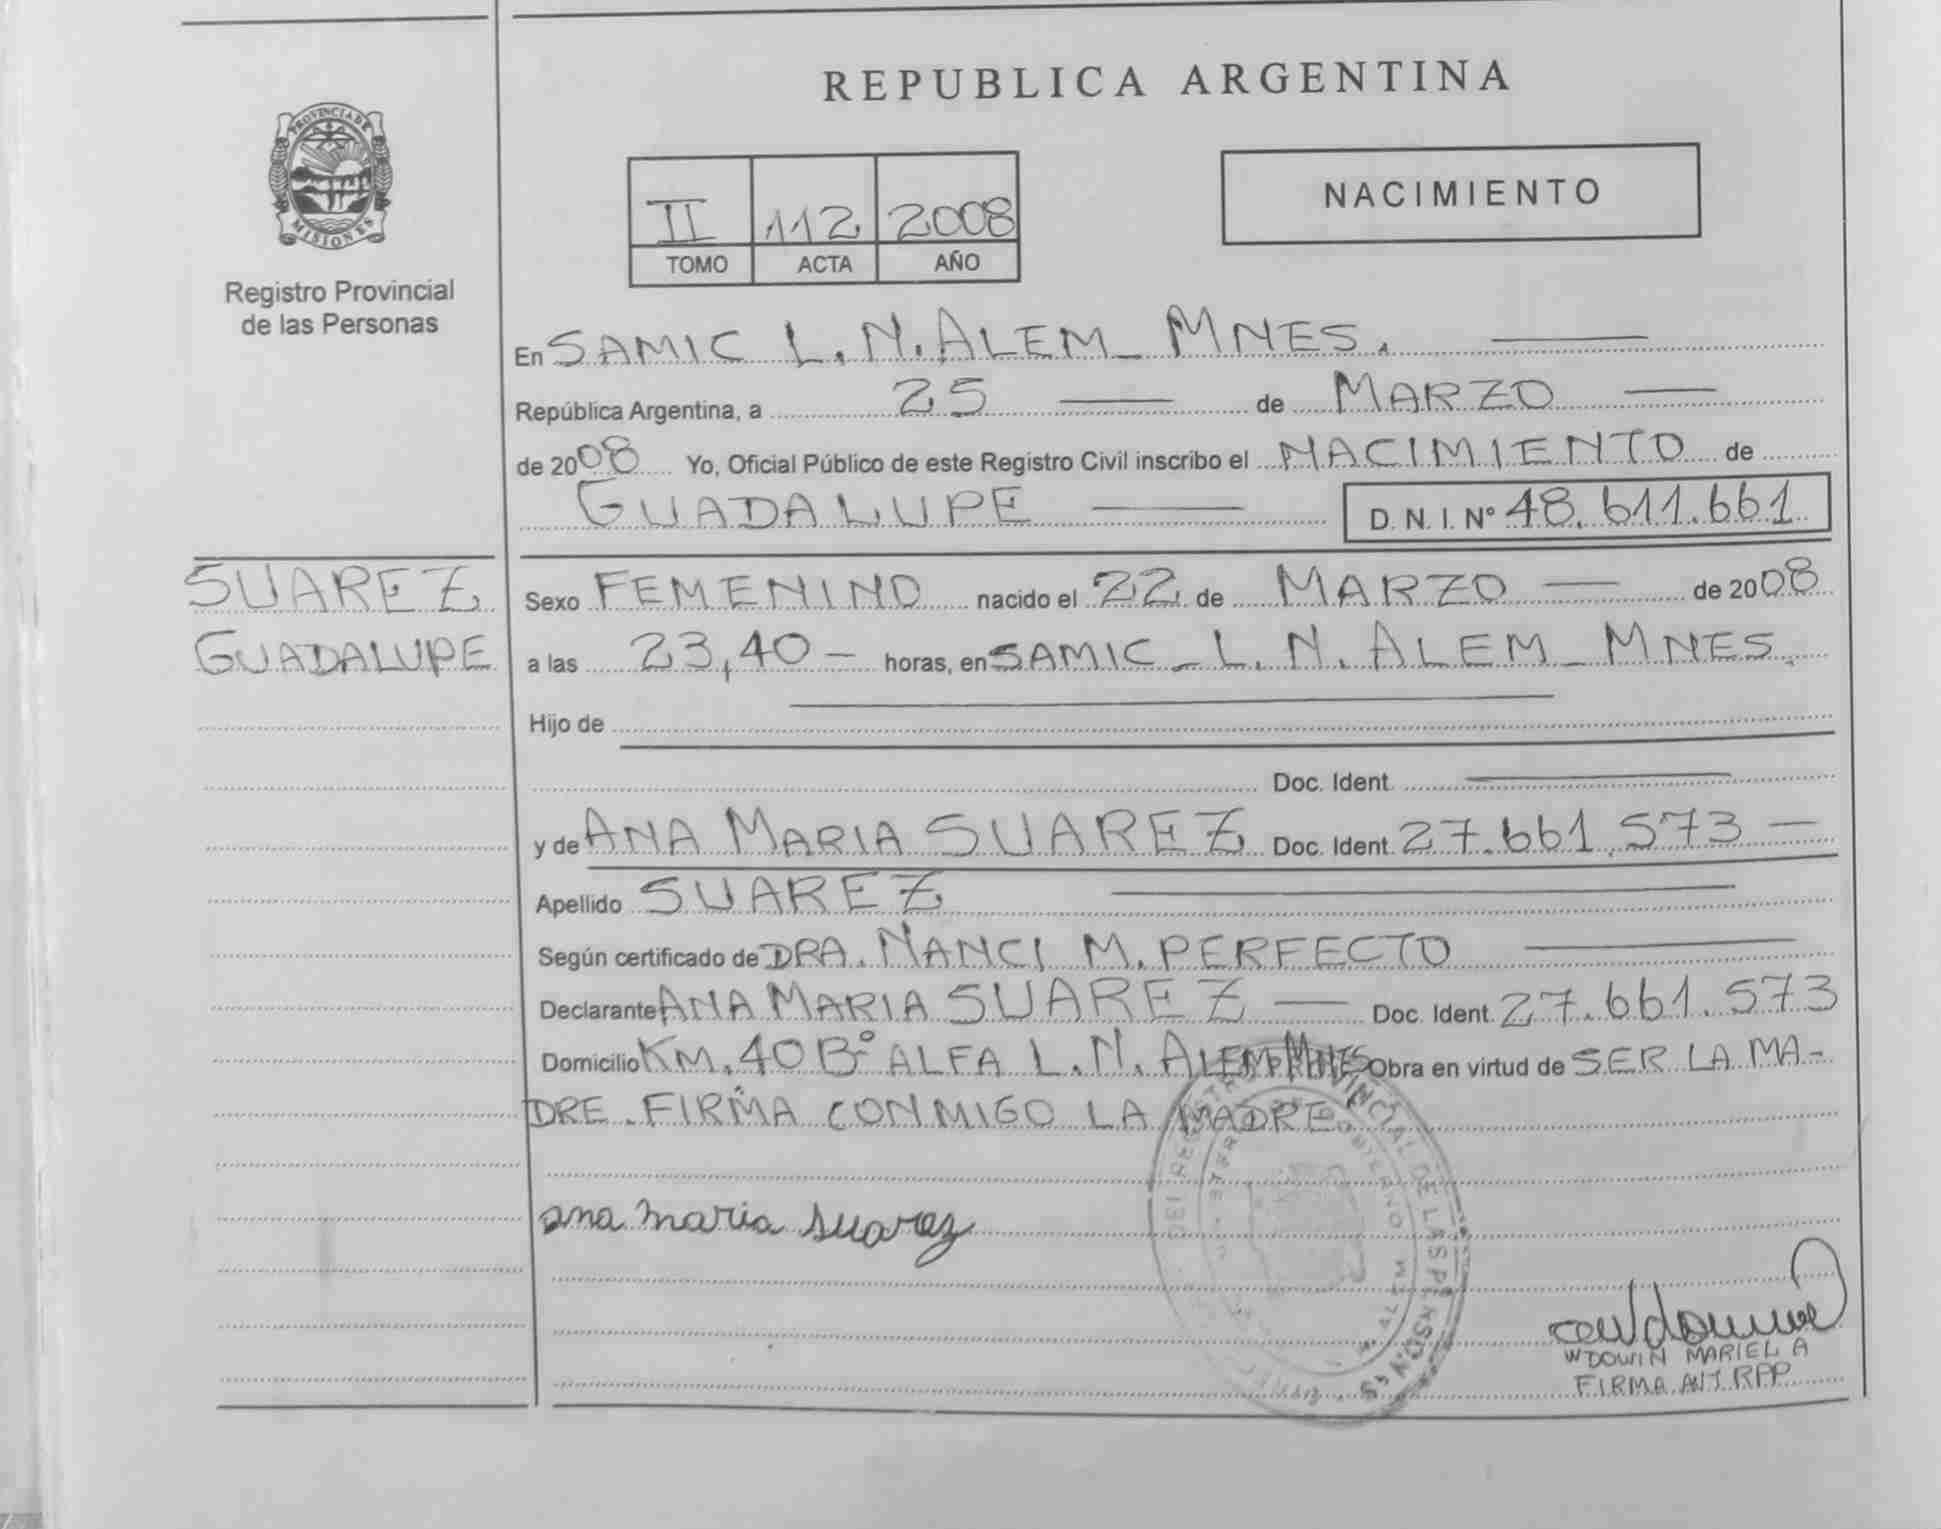 REPUBLICA ARGENTINA
PROVINCIA DE
MISIONES
Registro Provincial
de las Personas
II 112 2008
TOMO ACTA AÑO
NACIMIENTO
En SAMIC L.N. ALEM_ MNES.
República Argentina, a 25 de MARZO
de 2008 Yo, Oficial Público de este Registro Civil inscribo el NACIMIENTO de
GUADALUPE D. N. I. Nº 48.611.661
SUAREZ
GUADALUPE
Sexo FEMENINO nacido el 22 de MARZO de 2008
a las 23,40 - horas, en SAMIC _ L.N. ALEM _ MNES.
Hijo de
Doc. Ident.
y de ANA MARIA SUAREZ Doc. Ident. 27.661.573 -
Apellido SUAREZ
Según certificado de DRA. NANCI M. PERFECTO
Declarante ANA MARIA SUAREZ Doc. Ident. 27.661.573
Domicilio KM. 40 Bº ALFA L.N. ALEM MNES Obra en virtud de SER LA MA-
DRE. FIRMA CONMIGO LA MADRE
ana maria suarez
WDOWIN MARIEL A
FIRMA AUT RPP